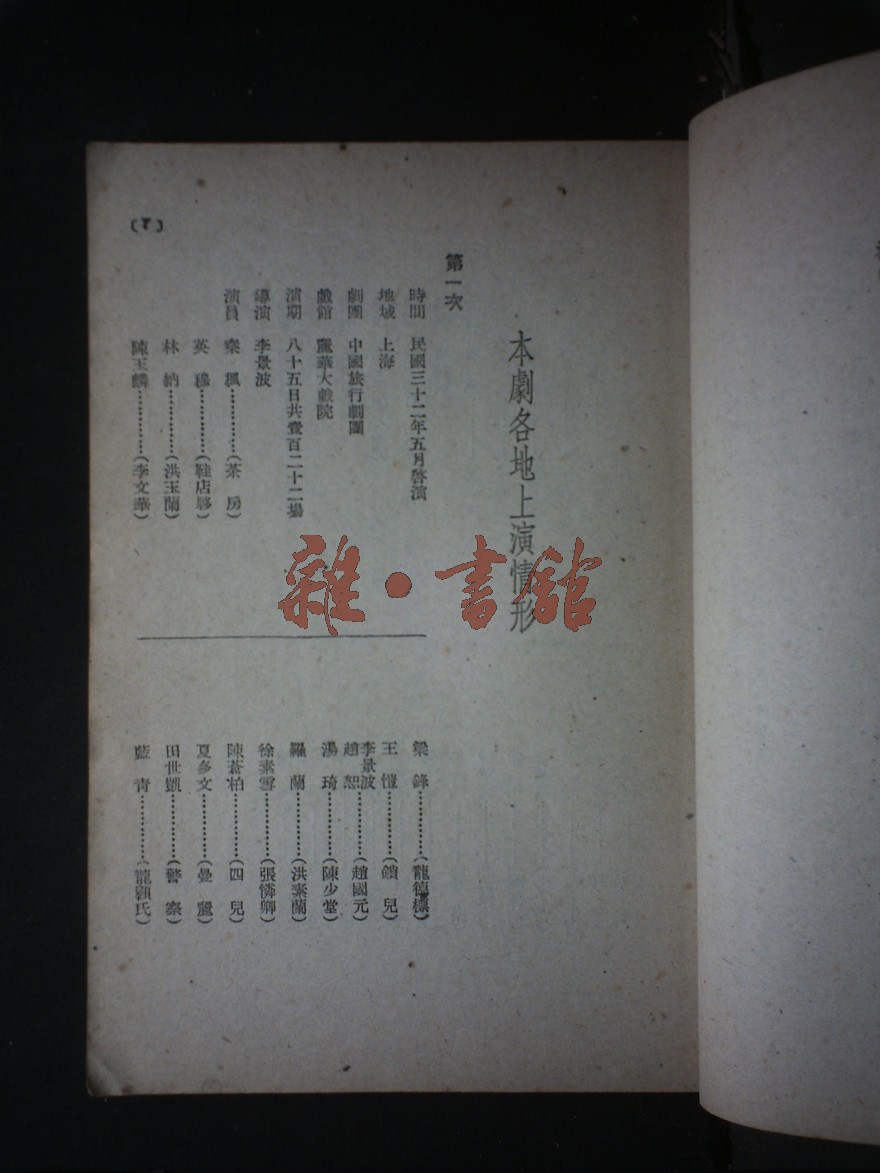 本劇各地上演情形
第一次
時間　民國三十二年五月啓演
地域　上海
劇團　中國旅行劇團
戲館　麗華大戲院
演期　八十五日共壹百二十二場
導演　李景波
演員　秦　楓…………（茶　房）
英　穆…………（鞋店夥）
林　納…………（洪玉蘭）
陳玉麟…………（李文華）
梁　鋒…………（龍德標）
王　愷…………（鎖　兒）
李景波
趙　恕…………（趙國元）
湯　琦…………（陳少堂）
羅　蘭…………（洪素蘭）
徐素雪…………（張憐卿）
陳蒼柏…………（四　兒）
夏多文…………（曼　麗）
田世凱…………（警　察）
藍　青…………（龍顧氏）
雜·書館